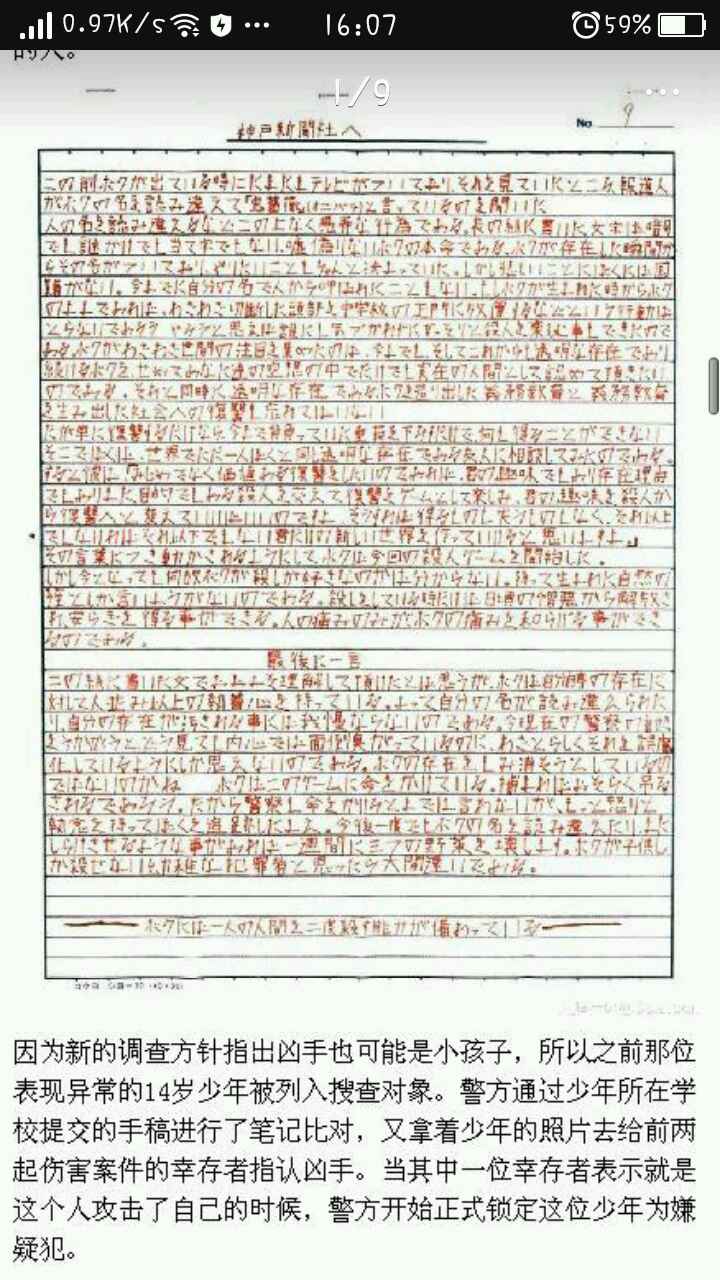 0.97K/s 16:07 59%
的人。
1/9
神戸新聞社へ
No. 9
この前ボクが出ている時にたまたまテレビがついており、それを見ていたところ、報道人
がボクの名を読み違えて「鬼薔薇」(オニバラ)と言っているのを聞いた
人の名を読み違えるなどこの上なく愚弄な行為である。表の紙に書いた文字は、暗号
でも謎かけでも当て字でもない、嘘偽りないボクの本命である。ボクが存在した瞬間か
らその名がついており、やりたいこともちゃんと決まっていた。しかし悲しいことにぼくには国
籍がない。今までに自分の名で人から呼ばれたこともない。もしボクが生まれた時からボク
のままであれば、わざわざ切断した頭部を中学校の正門に放置するなどという行動は
とらないであろう やろうと思えば誰にも気づかれずにひっそりと殺人を楽しむ事もできたので
ある。ボクがわざわざ世間の注目を集めたのは、今までも、そしてこれからも透明な存在であり
続けるボクを、せめてあなた達の空想の中でだけでも実在の人間として認めて頂きたい
のである。それと同時に、透明な存在であるボクを造り出した義務教育と、義務教育
を生み出した社会への復讐も忘れてはいない
だが単に復讐するだけなら、今まで背負っていた重荷を下ろすだけで、何も得ることができない
そこでぼくは、世界でただ一人ぼくと同じ透明な存在である友人に相談してみたのである。
すると彼は、「みじめでなく価値ある復讐をしたいのであれば、君の趣味でもあり存在理由
でもありまた目的でもある殺人を交えて復讐をゲームとして楽しみ、君の趣味を殺人か
ら復讐へと変えていけばいいのですよ、そうすれば得るものも失うものもなく、それ以上
でもなければそれ以下でもない君だけの新しい世界を作っていけると思いますよ。」
その言葉につき動かされるようにしてボクは今回の殺人ゲームを開始した。
しかし今となっても何故ボクが殺しが好きなのかは分からない。持って生まれた自然の
性としか言いようがないのである。殺しをしている時だけは日頃の憎悪から解放さ
れ、安らぎを得る事ができる。人の痛みのみが、ボクの痛みを和らげる事ができ
るのである。
最後に一言
この紙に書いた文でおおよそ理解して頂けたとは思うが、ボクは自分自身の存在に
対して人並み以上の執着心を持っている。よって自分の名が読み違えられた
り、自分の存在が汚される事には我慢ならないのである。今現在の警察の動き
をうかがうと、どう見ても内心では面倒臭がっているのに、わざとらしくそれを誤魔
化しているようにしか思えないのである。ボクの存在をもみ消そうとしているの
ではないのかね ボクはこのゲームに命をかけている。捕まればおそらく吊る
されるであろう。だから警察も命をかけろとまでは言わないが、もっと怒りと
執念を持ってぼくを追跡したまえ。今後一度でもボクの名を読み違えたり、また
しらけさせるような事があれば一週間に三つの野菜を壊します。ボクが子供し
か殺せない幼稚な犯罪者と思ったら大間違いである。
ボクには一人の人間を二度殺す能力が備わっている
因为新的调查方针指出凶手也可能是小孩子，所以之前那位
表现异常的14岁少年被列入搜查对象。警方通过少年所在学
校提交的手稿进行了笔记比对，又拿着少年的照片去给前两
起伤害案件的幸存者指认凶手。当其中一位幸存者表示就是
这个人攻击了自己的时候，警方开始正式锁定这位少年为嫌
疑犯。